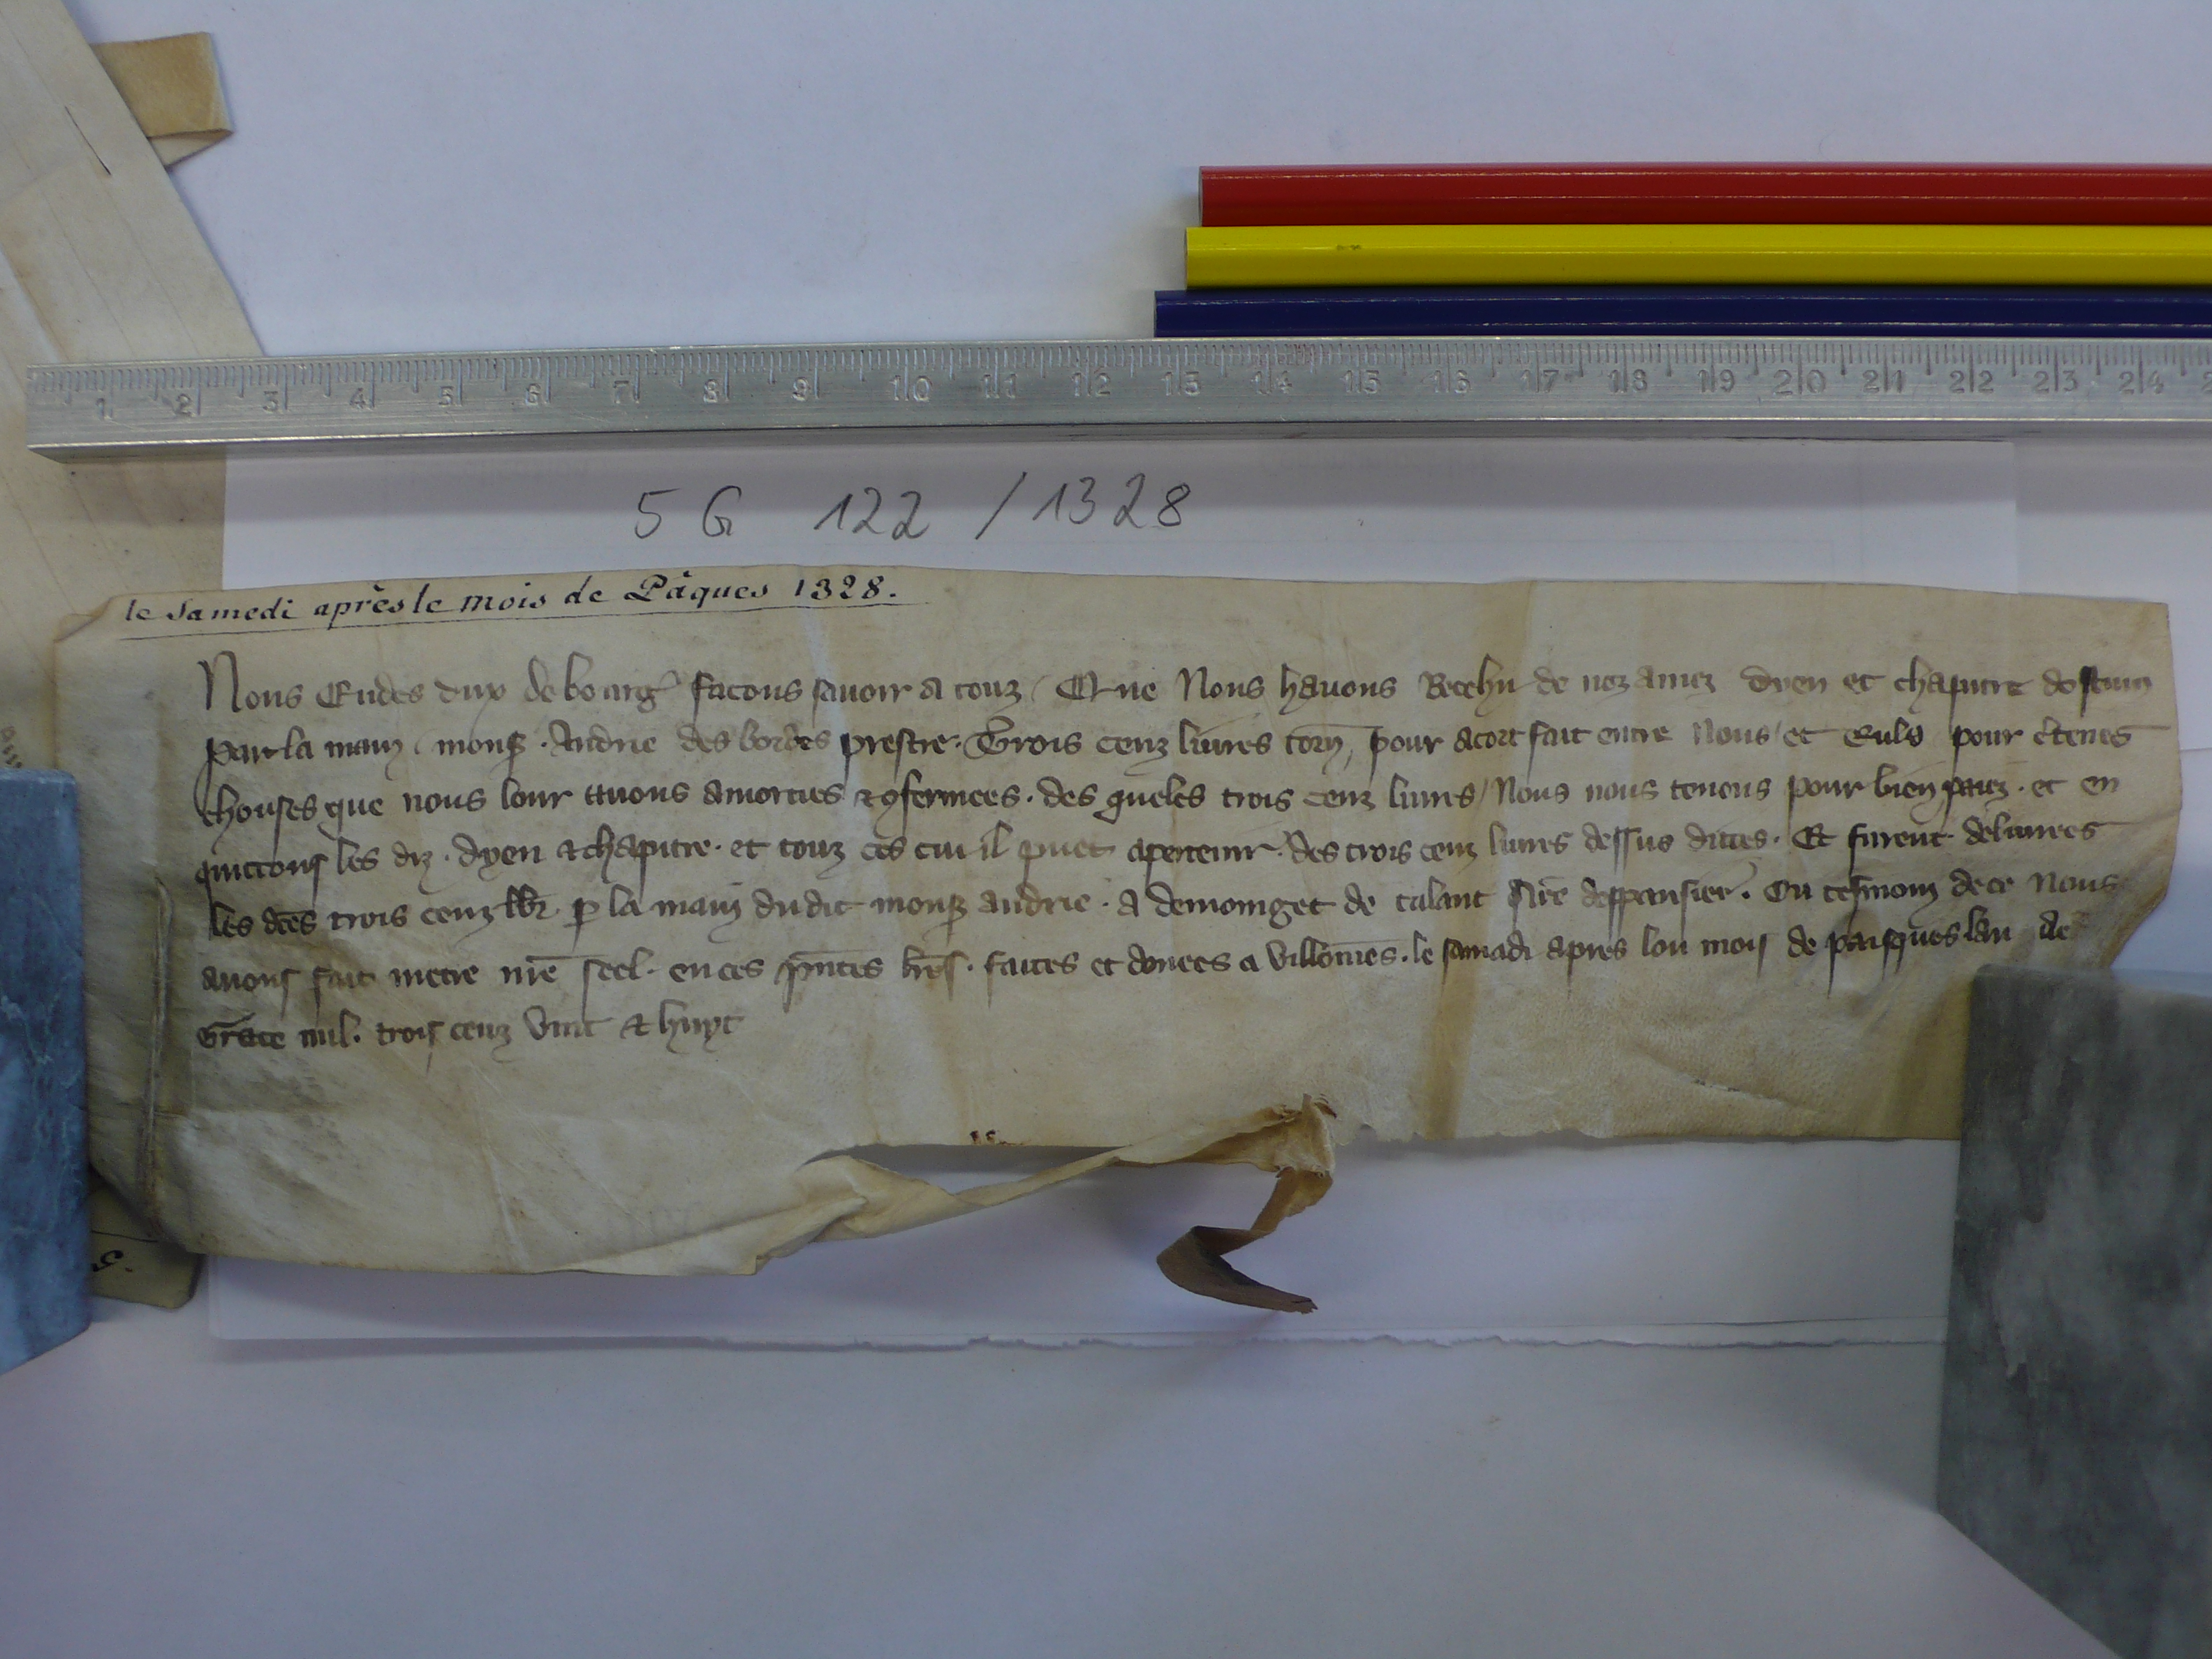 1 2 3 4 5 6 7 8 9 10 11 12 13 14 15 16 17 18 19 20 21 22 23 24
5 G 122 / 1328
le Samedi après le mois de Pâques 1328.
Nous Eudes dux de bourg' facons sauoir a touz / Que Nous hauons Recehu de noz amez dyen et chapitre dostum
par la main mons' . Andrie des bordes prestre . Trois cenz liures torn, pour acort fait entre Nous et Euls pour cteñes
chouses que nous lour auons amorties & ꝯfermees . des queles trois cenz liures / Nous nous tenons pour bien paiez . et en
quittons les diz . dyen & chapitre . et touz ces cui il puet apertenir . des trois cenz liures dessus dites . Et furent deliurees
les dces trois cenz lbr . ꝑ la main dudit mons' andrie . a demoinget de talant nre despensier . En tesmoin de ce Nous
auons fait metre nre seel . en ces pntes lres . faites et donees a villones . le samadi apres lou mois de pasques lan de
Grace mil . trois cenz vint & huyt